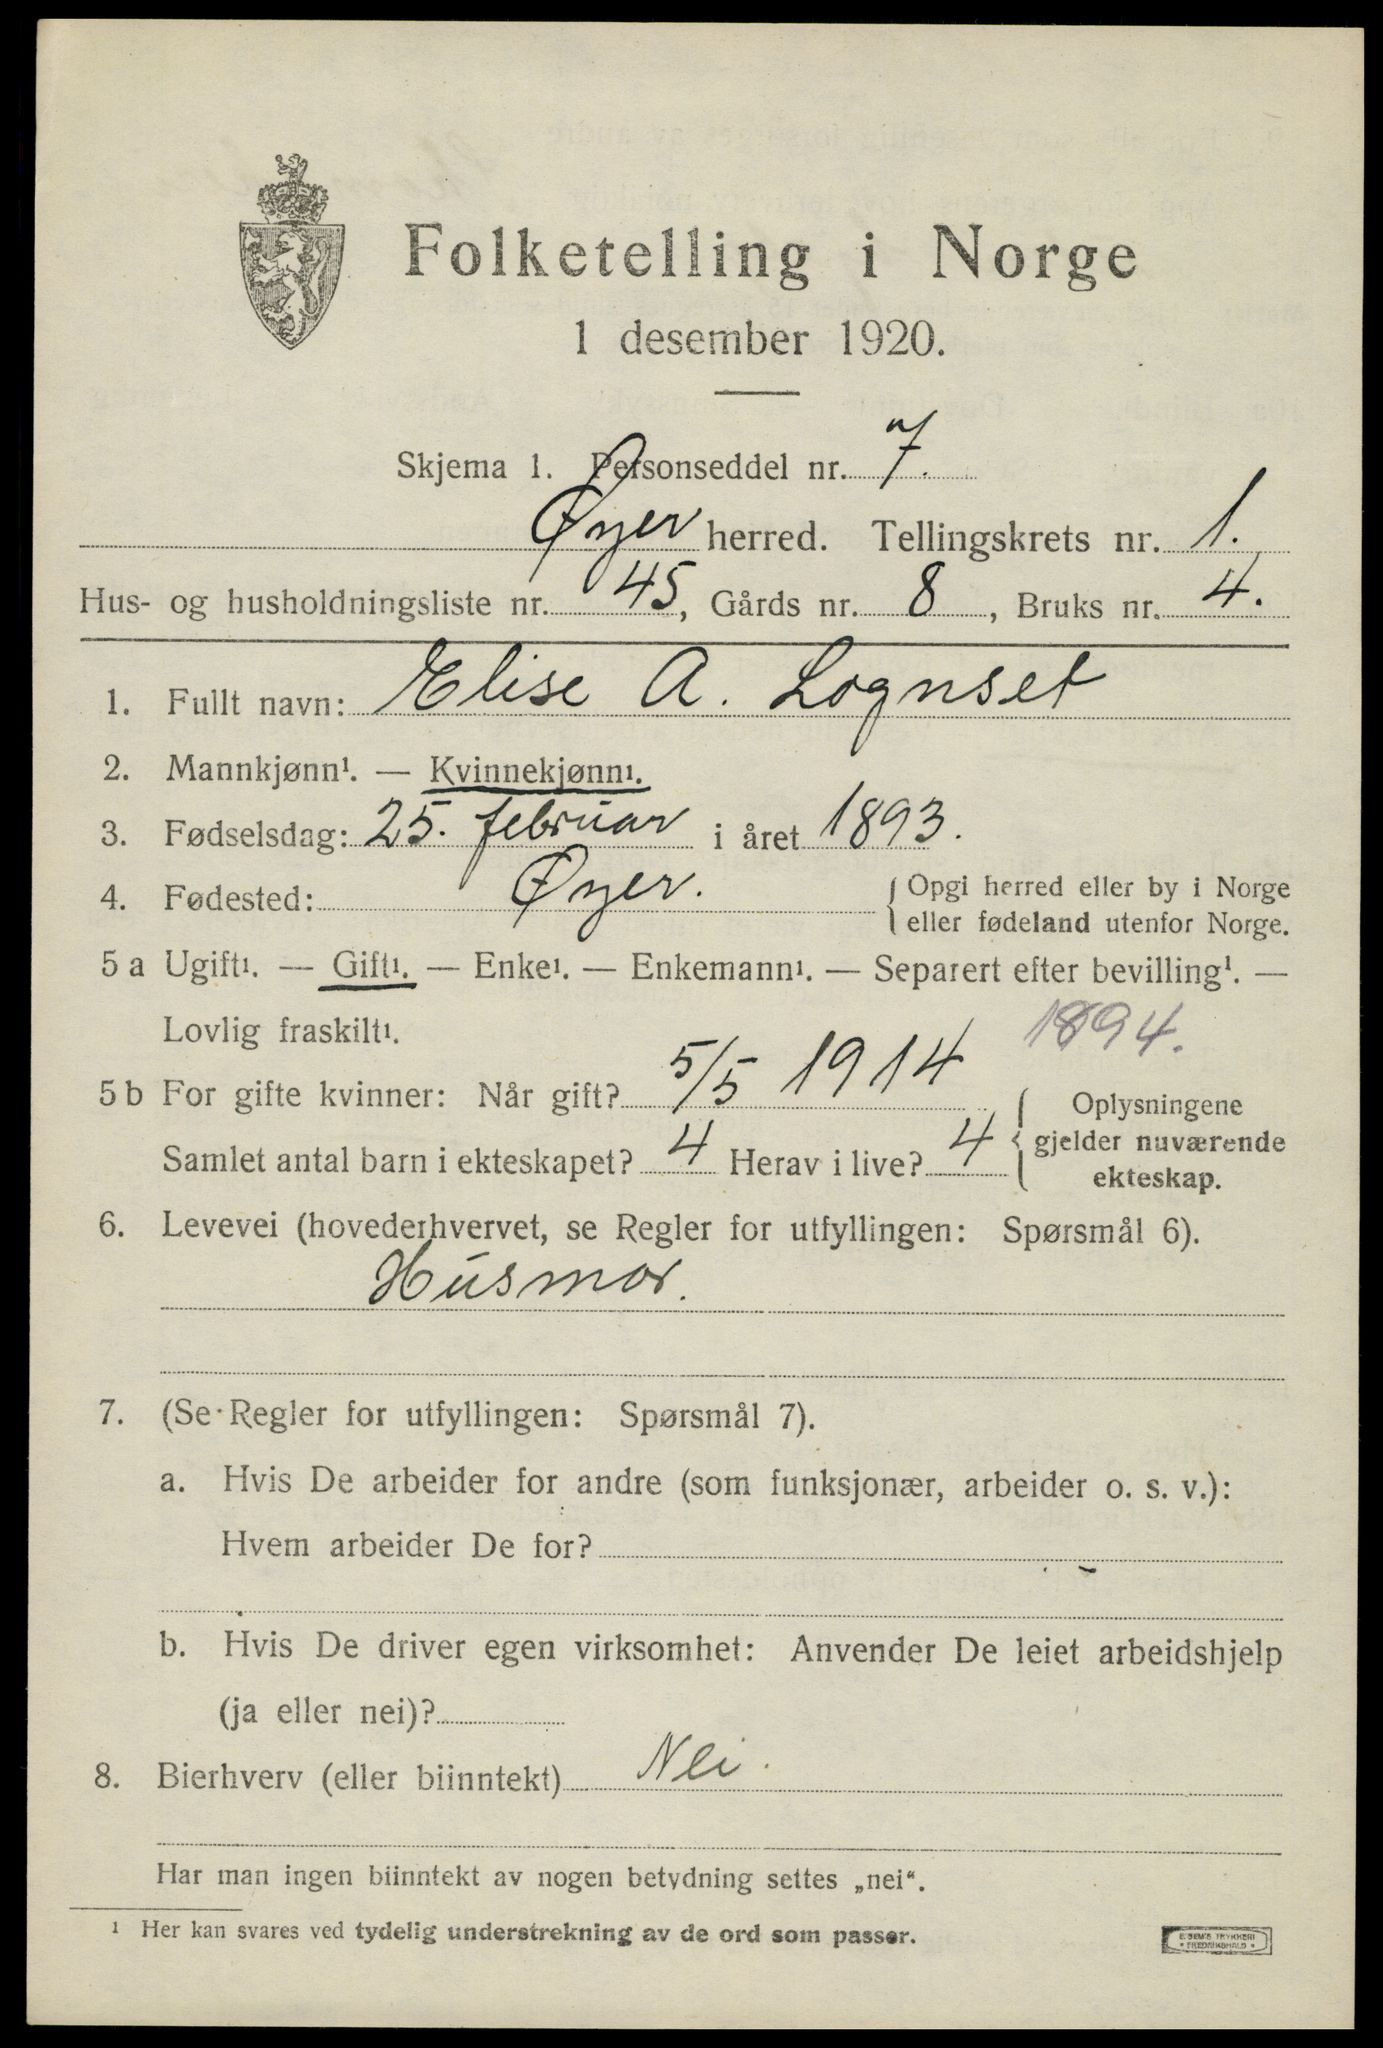 Folketelling i Norge
1 desember 1920.
Skjema 1. Personseddel nr. 7.
Øyer herred. Tellingskrets nr. 1.
Hus- og husholdningsliste nr. 45, Gårds nr. 8, Bruks nr. 4.
1. Fullt navn: Elise A. Lognset
2. Mannkjønn¹. — Kvinnekjønn¹.
3. Fødselsdag: 25. februar i året 1893.
4. Fødested: Øyer. { Opgi herred eller by i Norge
eller fødeland utenfor Norge.
5 a Ugift¹. — Gift¹. — Enke¹. — Enkemann¹. — Separert efter bevilling¹. —
Lovlig fraskilt¹. 1894.
5 b For gifte kvinner: Når gift? 5/5 1914 { Oplysningene
gjelder nuværende
ekteskap.
Samlet antal barn i ekteskapet? 4 Herav i live? 4
6. Levevei (hovederhvervet, se Regler for utfyllingen: Spørsmål 6).
Husmor.
7. (Se Regler for utfyllingen: Spørsmål 7).
a. Hvis De arbeider for andre (som funksjonær, arbeider o. s. v.):
Hvem arbeider De for?
b. Hvis De driver egen virksomhet: Anvender De leiet arbeidshjelp
(ja eller nei)?
8. Bierhverv (eller biinntekt) Nei.
Har man ingen biinntekt av nogen betydning settes „nei“.
¹ Her kan svares ved tydelig understrekning av de ord som passer.
E. SEM'S TRYKKERI
• FREDRIKSHALD •